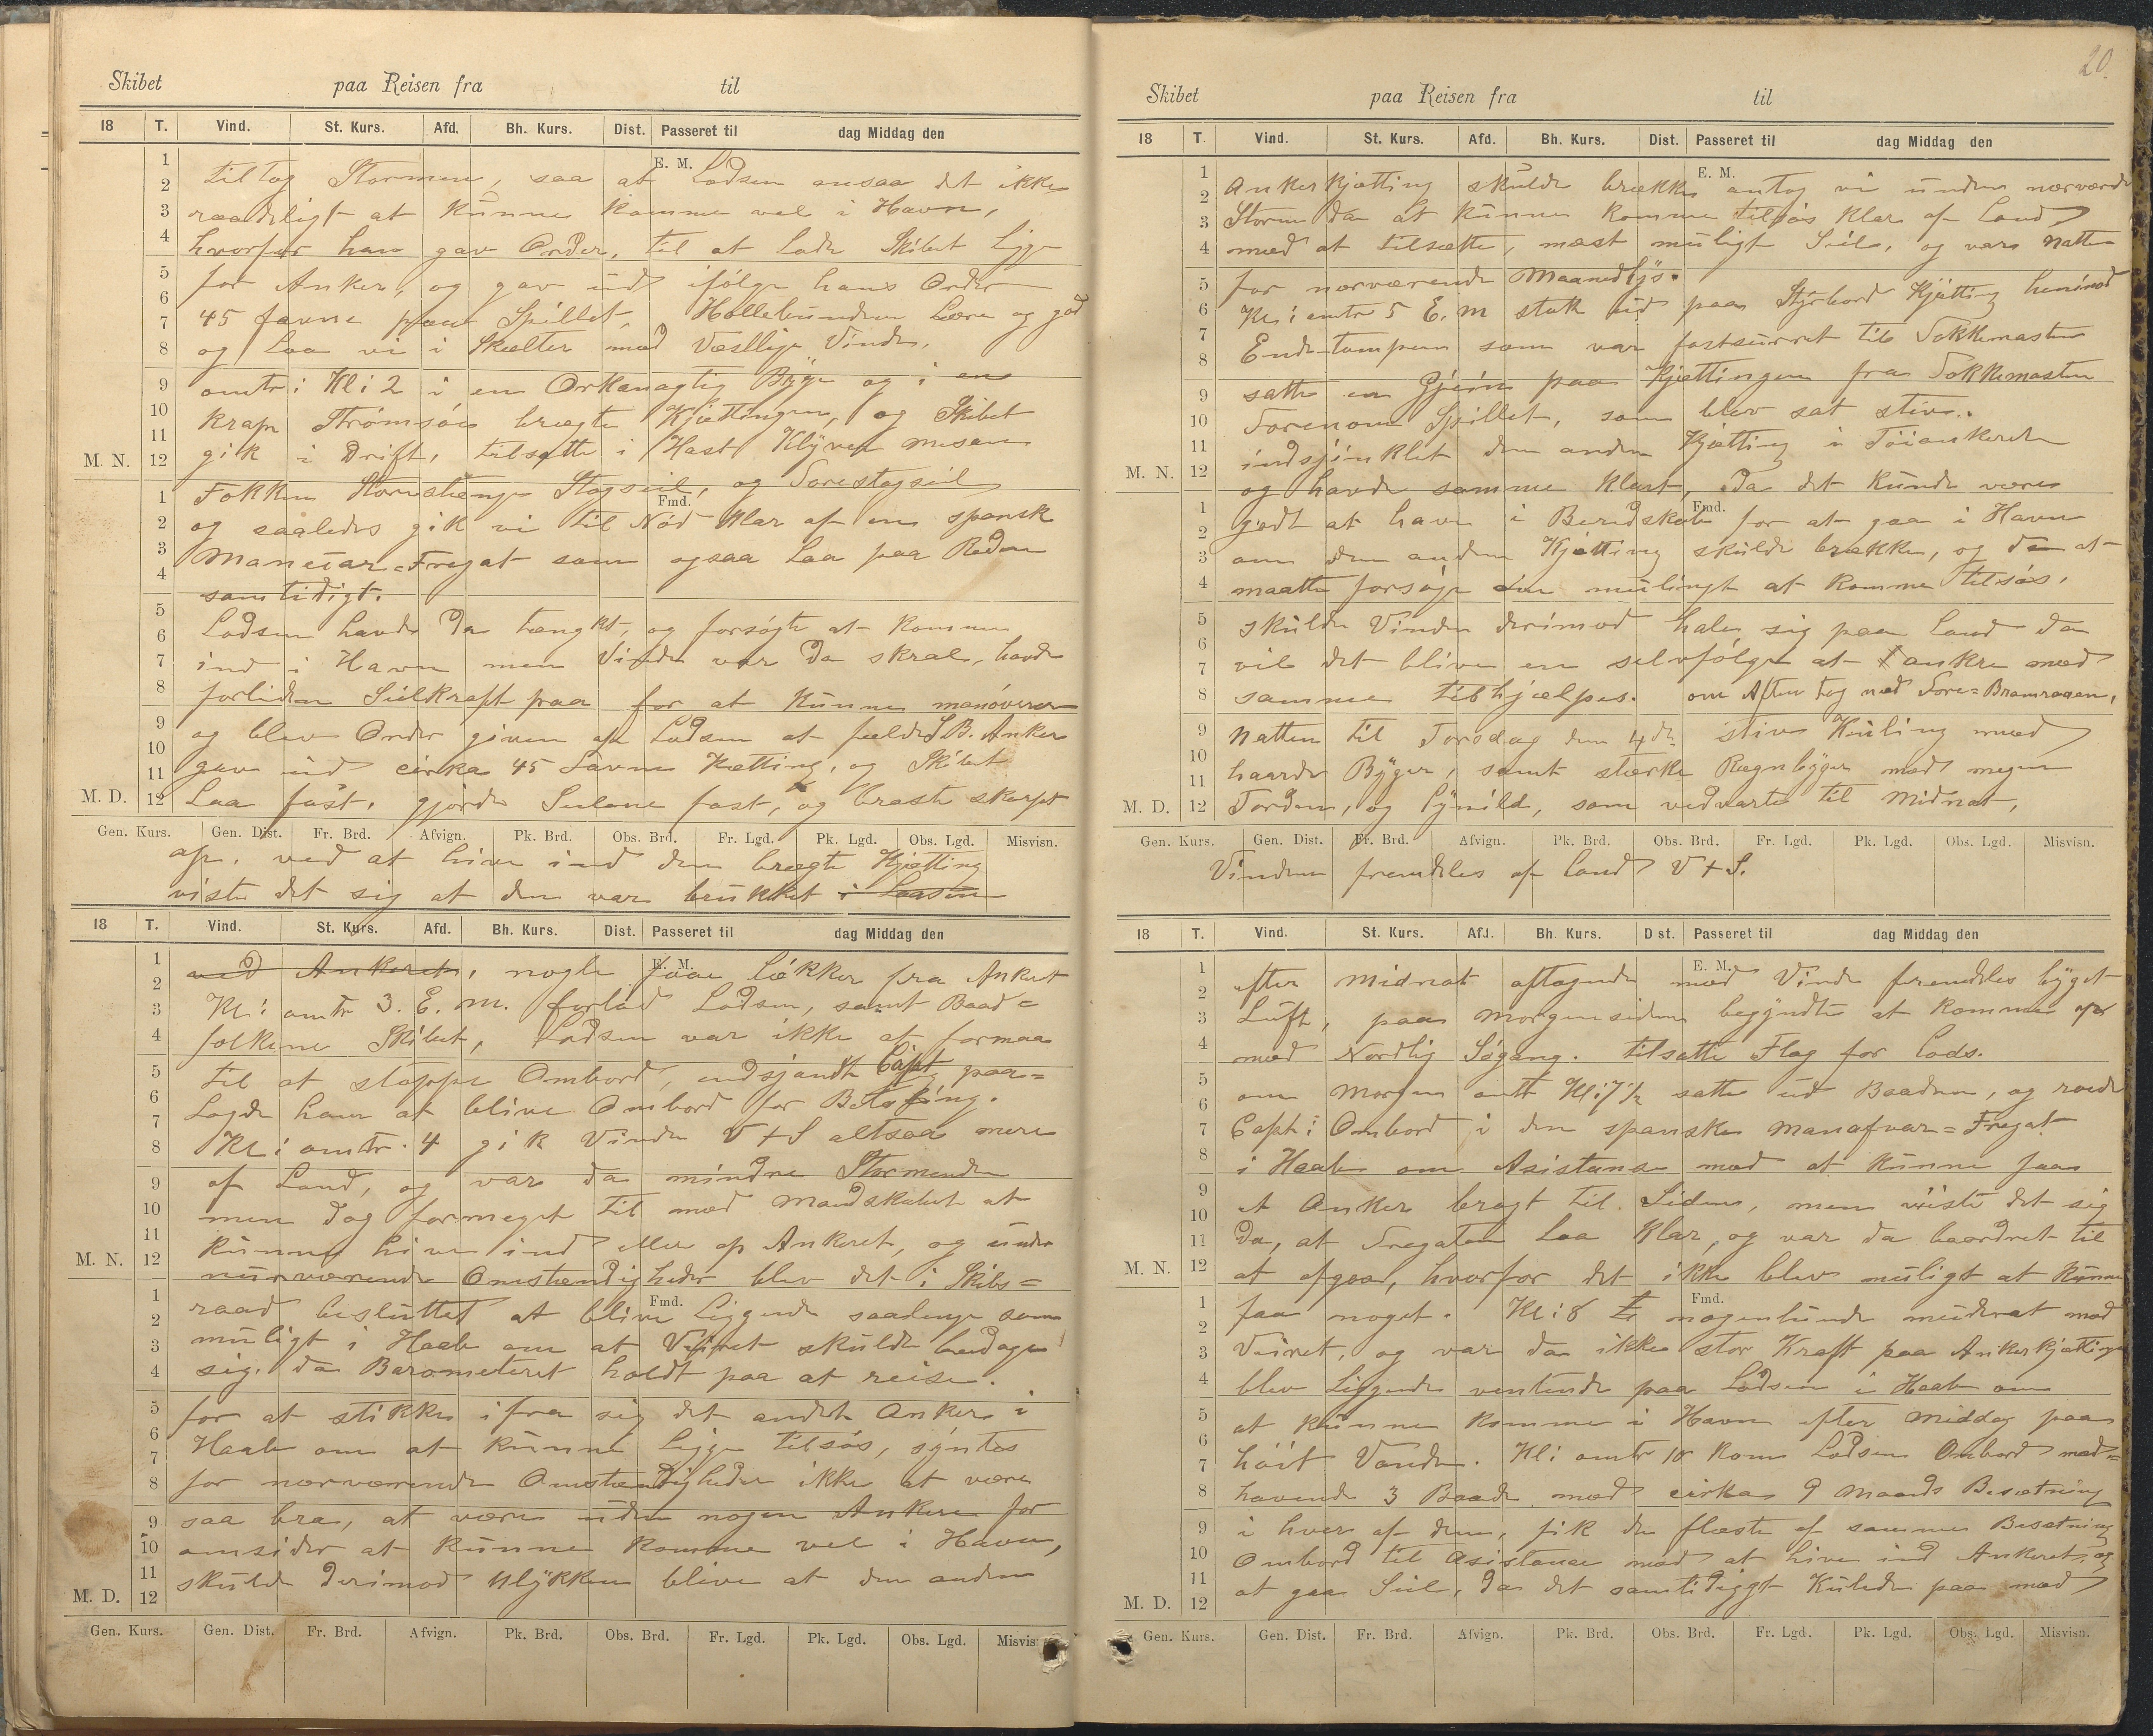 Skibet paa Reisen fra til
18 T. Vind. St. Kurs. Afd. Bh. Kurs. Dist. Passeret til dag Middag den
E. M.
tiltog Stormen, saa at Lodsen ansaa det ikke
raadeligt at kunne komme vel i Havn,
hvorfor han gav Order, til at lade Skibet ligge
for Anker, og gav ud ifølge hans Order
45 favne paa Spillet, Hollebunden Lere og god
og laa vi i Skælter med Væstlige Vinde,
omtr: Kl: 2 i en Orkanagtig Byge og i en
krap Strømsøe brægte Kjættingen, og Skibet
gik i Drift, tilsatte i Hast Klyver mesan
Fokken Storestænge Stagseil, og Forestagseil
Fmd.
og saaledes gik vi til Nød klar af en spansk
Maneuar=Fregat som ogsaa laa paa Reden
samtidigt.
Lodsen havde da tængkt, og forsøgte at komme
ind i Havn men Vinden var da skral, havde
forliden Seilkraft paa for at kunne manøverere
og blev Order given af Lodsen at fælde S.B. Anker
gav ud cirka 45 Favne Kætting, og Skibet
Laa fast. gjorde Seilene fast, og braste skarpt
M. N. M. D.
Gen. Kurs. Gen. Dist. Fr. Brd. Afvign. Pk. Brd. Obs. Brd. Fr. Lgd. Pk. Lgd. Obs. Lgd. Misvisn.
op. ved at hive ind den brægte Kjætting
viste det sig at den var brukket i Laasen
18 T. Vind. St. Kurs. Afd. Bh. Kurs. Dist. Passeret til dag Middag den
E. M.
ved Ankeret, nogle faae Løkker fra Anket
Kl: omtr 3. E. M. forlod Lodsen, samt Baad=
folkene Skibet, Lodsen var ikke at formaa
til at stoppe Ombord, endsjøndt Capt paa=
lagde ham at blive Ombord for Betaling.
Kl: omtr. 4 gik Vinden V t S altsaa mere
af Land, og var da mindre Stormende
men dog formeget til med Mandskabet at
kunne hive ind eller op Ankeret, og under
nurværende Omstændigheder blev det i Skibs=
Fmd.
raad besluttet at blive liggende saalenge som
muligt i Haab om at Veiret skulde bedage
sig. da Barometeret holdt paa at reise.
for at stikke ifra sig det andet Anker i
Haab om at kunne ligge tilsøs, syntes
for nærværende Omstændigheder ikke at være
saa bra, at være uden nogen Ankere for
omsider at kunne komme vel i Havn,
skulde derimod Ulykken blive at den anden
M. N. M. D.
Gen. Kurs. Gen. Dist. Fr. Brd. Afvign. Pk. Brd. Obs. Brd. Fr. Lgd. Pk. Lgd. Obs. Lgd. Misvisn.
20.
Skibet paa Reisen fra til
18 T. Vind. St. Kurs. Afd. Bh. Kurs. Dist. Passeret til dag Middag den
E. M.
Ankerkjætting skulde brække antog vi under nærværende
Storm da at kunne komme tilsøs klar af Land
med at tilsætte, mæst muligt Seil, og var Natten
for nærværende Maanedlys.
Kl: omtr 5 E. M stak ud paa Styrbord Kjætting henimod
Ende-tampen som var fastsurret til Fokkemasten
satte en Gjein paa Kjættingen fra Fokkemasten
Forenom Spillet, som blev sat stiv.
indsjinklet den anden Kjætting i Töiankeret
og havde samme klart, da det kunde være
Fmd.
godt at have i Beredskab for at gaa i Havn
om den anden Kjætting skulde brække, og da at
maatte forsøge om mulingt at komme tilsøs,
skulde Vinden derimod hale sig paa Land da
vil det blive en selvfølge at ankre med
samme tilhjælpes. om Aften tog ned Fore=Bramraaen,
Natten til Torsdag den 4de stiv Kuling med
haarde Byger, samt stærke Regnbyger med megen
Torden, og Lynild, som vedvarte til Midnat,
M. N. M. D.
Gen. Kurs. Gen. Dist. Fr. Brd. Afvign. Pk. Brd. Obs. Brd. Fr. Lgd. Pk. Lgd. Obs. Lgd. Misvisn.
Vinden fremdeles af Land V t S.
18 T. Vind. St. Kurs. Afd. Bh. Kurs. Dist. Passeret til dag Middag den
E. M.
efter Midnat aftagende med Vinde fremdeles byget
Luft, paa Morgensiden begyndte at komme op
med Nordlig Søgang. tilsatte Flag for Lods.
om Morgen omtr Kl: 7 1/2 satte ud Baaden, og roede
Capt: Ombord i den spanske Manofvar=Fregat
i Haab om Asistanse med at kunne faae
et Anker bragt til Siden, men viiste det sig
da, at Fregaten laa klar, og var da beordret til
at afgaa, hvorfor det ikke blev muligt at kunne
Fmd.
faa noget. Kl: 8 nogenlunde muderat med
Veiret, og var da ikke stor Kraft paa Ankerkjættingen
blev Liggende ventende paa Lodsen i Haab om
at kunne komme i Havn efter Middag paa
høit Vande. Kl: omtr 10 kom Lodsen Ombord med=
havende 3 Baade med cirka 9 Mands Besætning
i hver af dem, fik de flæste af samme Besætning
Ombord til Asistance med at hive ind Ankeret, og
at gaa Seil, da det samtidiggt Kulede paa med
M. N. M. D.
Gen. Kurs. Gen. Dist. Fr. Brd. Afvign. Pk. Brd. Obs. Brd. Fr. Lgd. Pk. Lgd. Obs. Lgd. Misvisn.